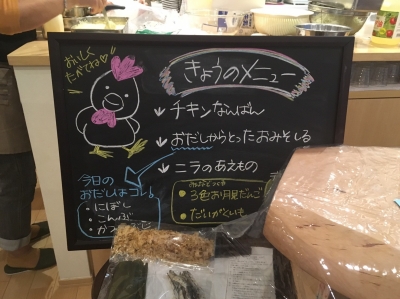 おいしく
たべてね♡
きょうのメニュー
チキンなんばん
おだしからとったおみそしる
ニラのあえもの
今日の
おだしはコレ。
・にぼし
・こんぶ
・かつ
みんなでつくる
・3色お月見だんご
・だいがくいも